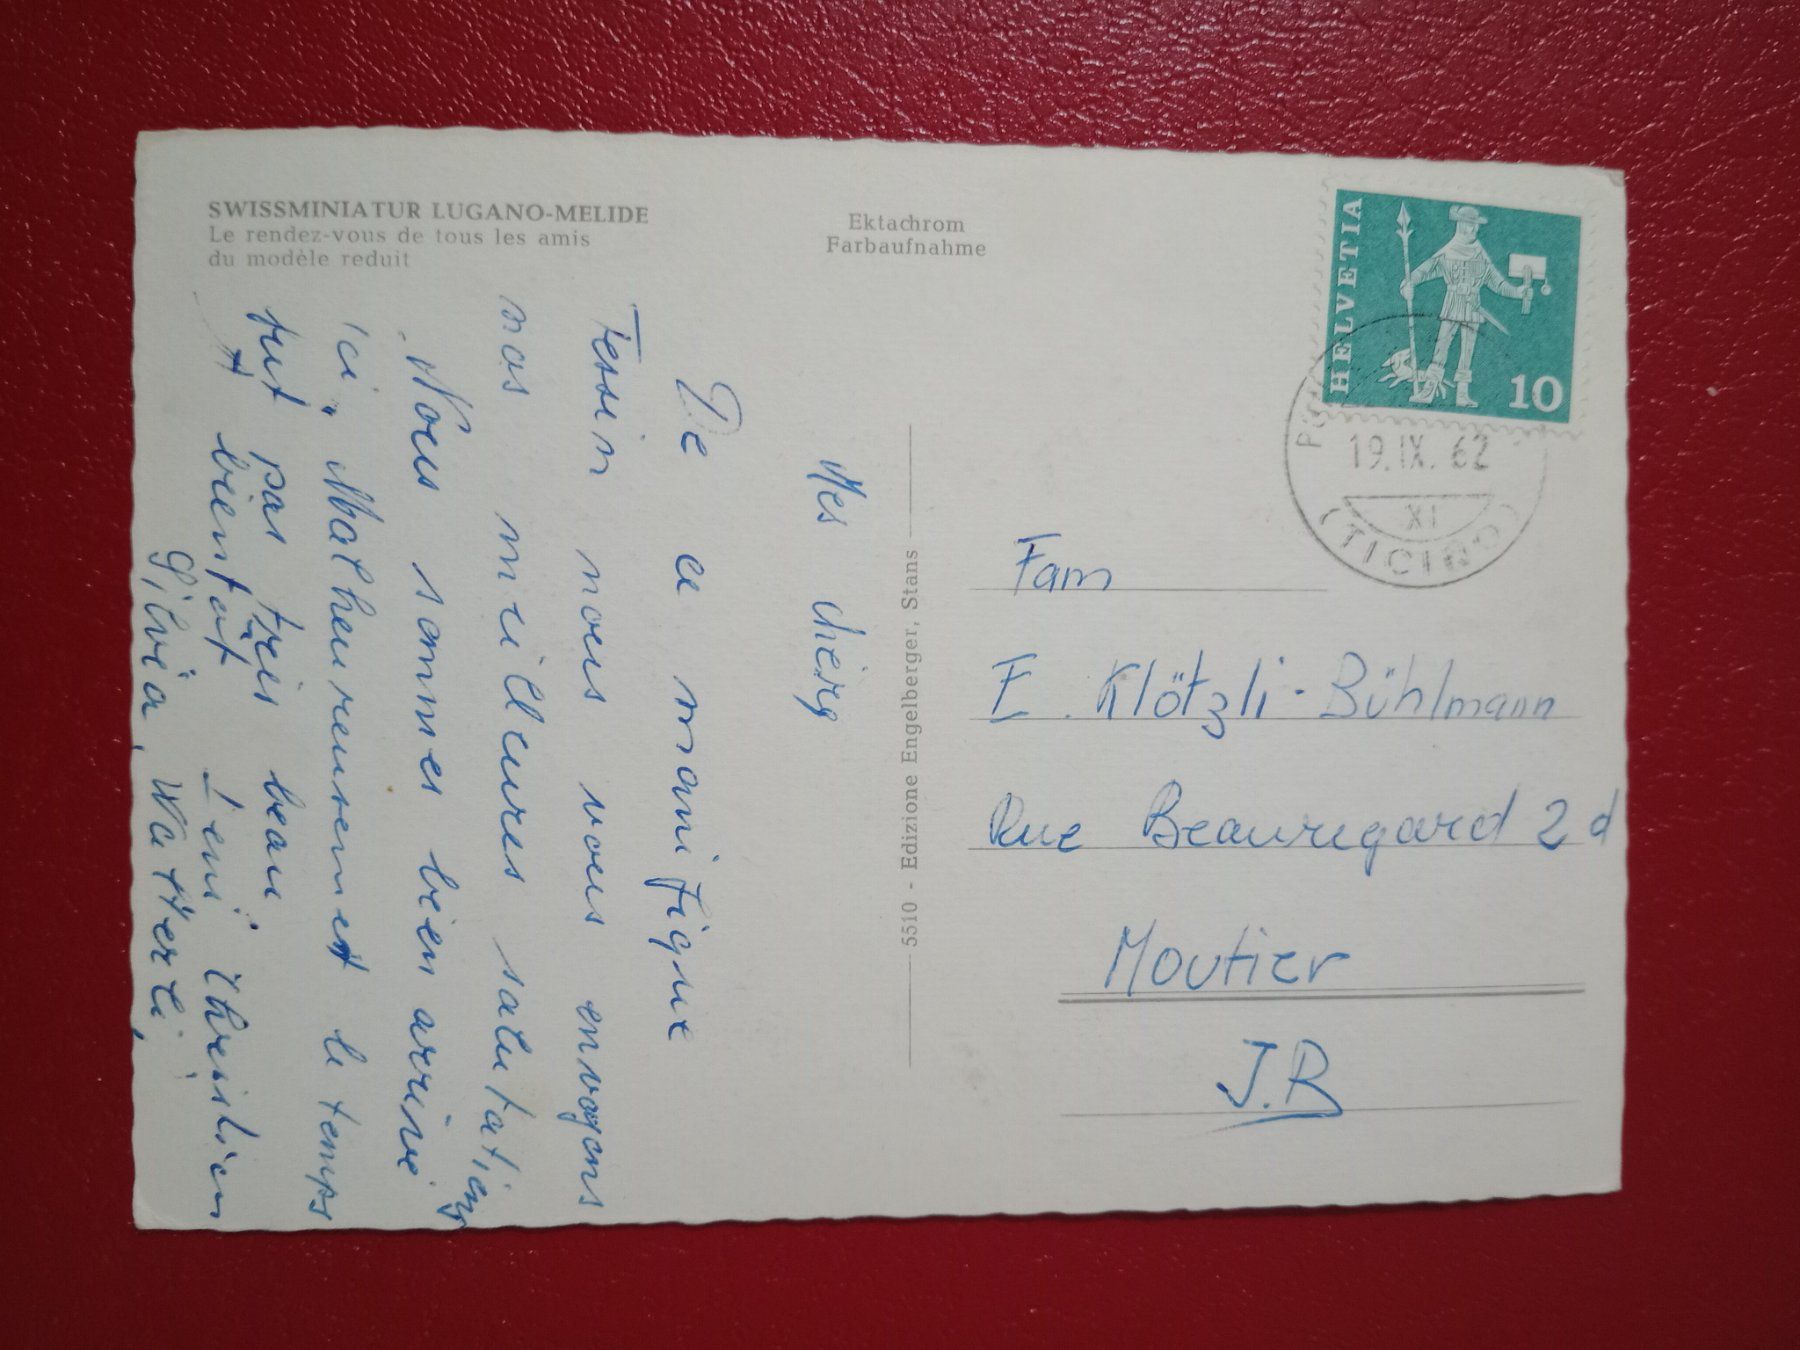 SWISSMINIATUR LUGANO-MELIDE
Le rendez-vous de tous les amis
du modèle reduit
Ektachrom
Farbaufnahme
HELVETIA
10
19.IX.62
XI
(TICINO)
5510 - Edizione Engelberger, Stans
Mes chèrs
De ce manifique
Tessin nous vous envoyons
nos meilleures salutations
Nous sommes bien arrivé
ici. Malheureusement le temps
fut pas très beau
A bientôt Leni Christian
Silvia Watterli
Fam
E. Klötzli-Bühlmann
Rue Beauregard 2d
Moutier
J.B